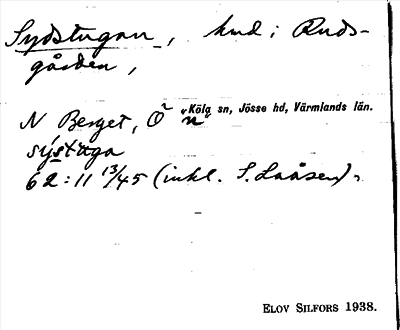 Sydstugan, hmd i Ruds-
gården,
N Berget, Ö
Köla sn, Jösse hd, Värmlands län.
sýstuga
62:11 13/45 (inkl. S. Laåsen).
ELOV SILFORS 1938.